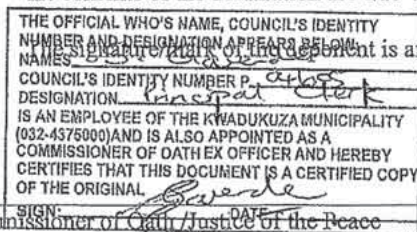 THE OFFICIAL WHO'S NAME, COUNCIL'S IDENTITY
NUMBER AND DESIGNATION APPEARS BELOW.
The signature/ of the deponent is
NAMES
COUNCIL'S IDENTITY NUMBER P.
DESIGNATION Principal Clerk
IS AN EMPLOYEE OF THE KWADUKUZA MUNICIPALITY
(032-4375000)AND IS ALSO APPOINTED AS A
COMMISSIONER OF OATH EX OFFICER AND HEREBY
CERTIFIES THAT THIS DOCUMENT IS A CERTIFIED COPY
OF THE ORIGINAL
SIGN: DATE
missioner of Oath/Justice of the Peace